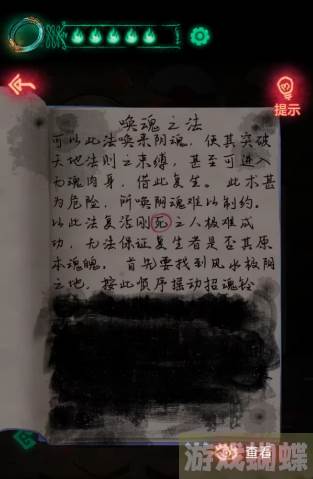 提示
唤魂之法
可以此法唤来阴魂，使其突破
天地法则之束缚，甚至可进入
无魂肉身，借此复生。此术甚
为危险，所唤阴魂难以制约。
以此法复活刚死之人极难成
功，无法保证复生者是否其原
本魂魄。首先要找到风水极阴
之地，按此顺序摇动招魂铃
查看
游戏蝴蝶